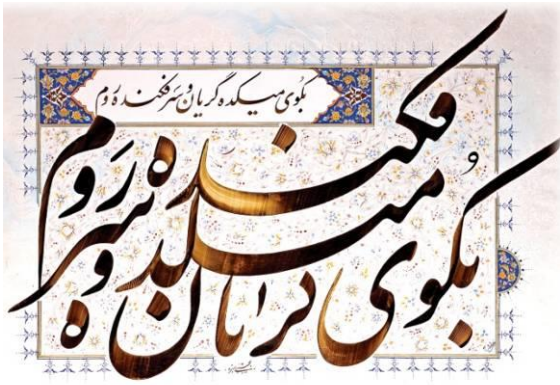 بکوی میکده گریان و سرفکنده روم
بکوی میکده گریان و سرفکنده روم